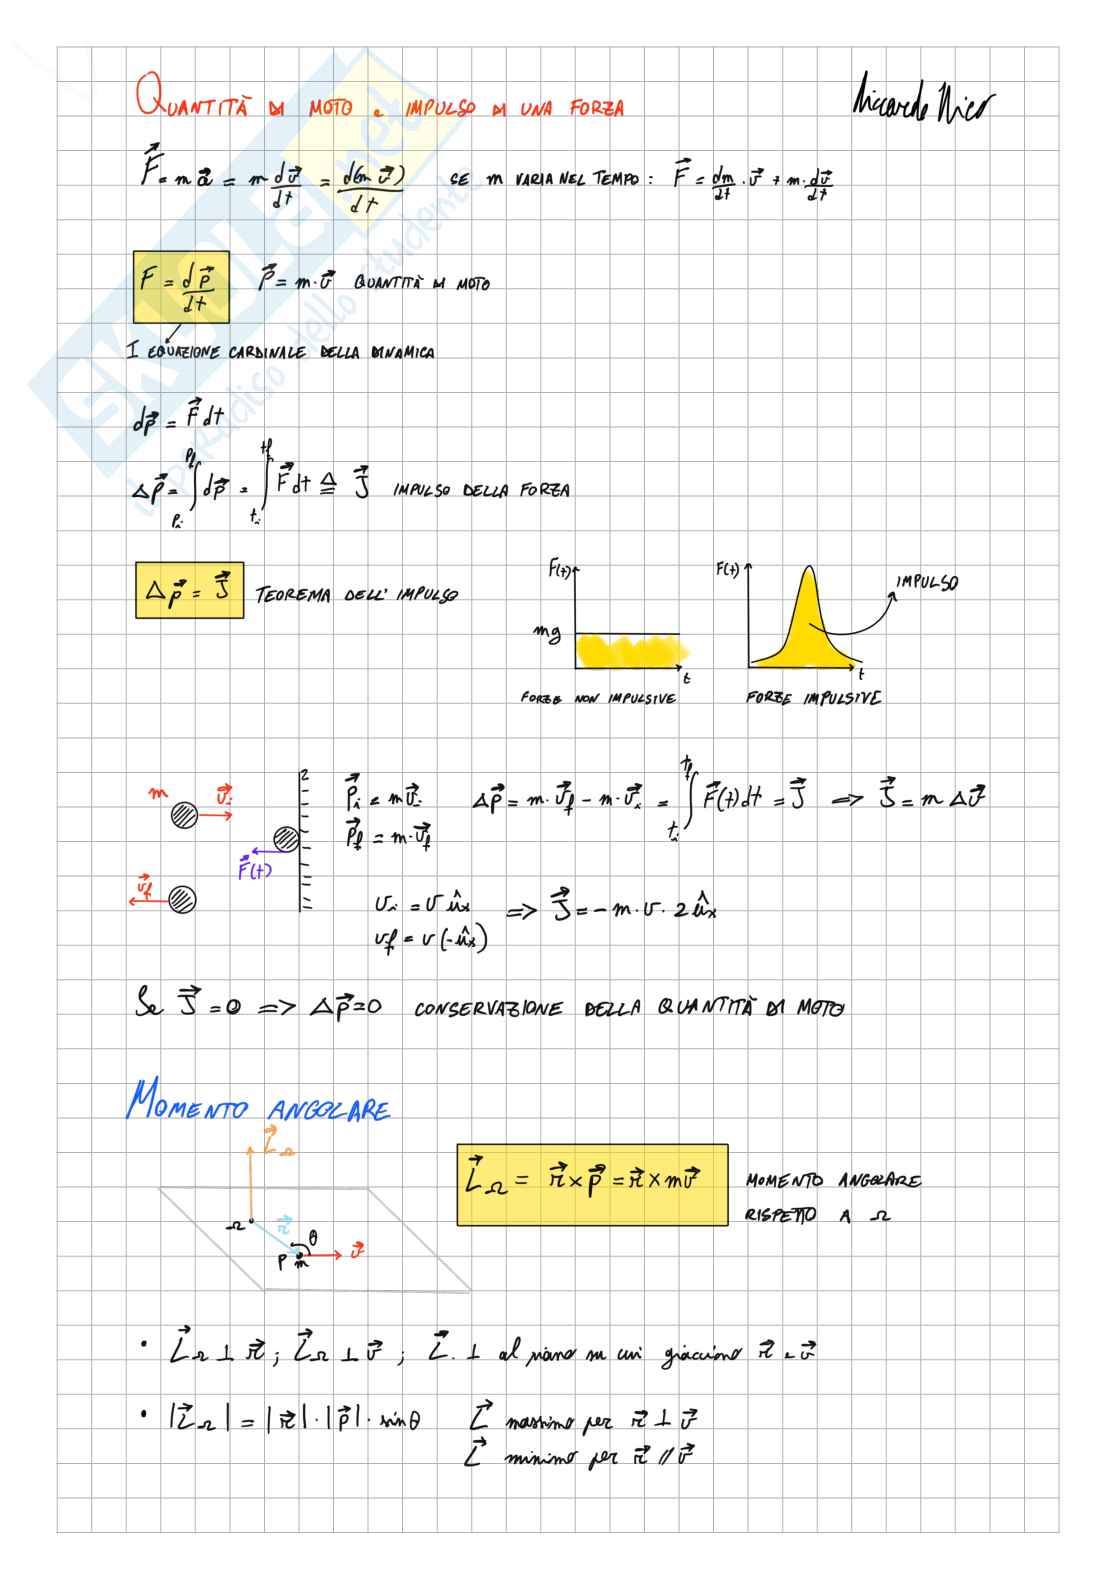 QUANTITÀ DI MOTO e IMPULSO DI UNA FORZA
Riccardo Nico
F⃗ = m a⃗ = m dv⃗/dt = d(m v⃗)/dt SE m VARIA NEL TEMPO: F⃗ = dm/dt · v⃗ + m · dv⃗/dt
F = dp⃗/dt p⃗ = m · v⃗ QUANTITÀ DI MOTO
I EQUAZIONE CARDINALE DELLA DINAMICA
dp⃗ = F⃗ dt
Δp⃗ = ∫_{pi}^{pf} dp⃗ = ∫_{ti}^{tf} F⃗ dt ≜ J⃗ IMPULSO DELLA FORZA
Δp⃗ = J⃗ TEOREMA DELL' IMPULSO
F(t) mg t
FORZE NON IMPULSIVE
F(t) IMPULSO t
FORZE IMPULSIVE
m v⃗i
F⃗(t)
v⃗f
p⃗i = m v⃗i Δp⃗ = m · v⃗f − m · v⃗i = ∫_{ti}^{tf} F⃗(t) dt = J⃗ => J⃗ = m Δv⃗
p⃗f = m · v⃗f
vi = v ûx => J⃗ = − m · v · 2 ûx
vf = v (−ûx)
Se J⃗ = 0 => Δp⃗ = 0 CONSERVAZIONE DELLA QUANTITÀ DI MOTO
MOMENTO ANGOLARE
L⃗Ω
Ω r⃗ θ
P m v⃗
L⃗Ω = r⃗ × p⃗ = r⃗ × m v⃗ MOMENTO ANGOLARE
RISPETTO A Ω
• L⃗Ω ⊥ r⃗ ; L⃗Ω ⊥ v⃗ ; L⃗. ⊥ al piano su cui giacciono r⃗ e v⃗
• |L⃗Ω| = |r⃗| · |p⃗| · sin θ L⃗ massimo per r⃗ ⊥ v⃗
L⃗ minimo per r⃗ // v⃗
SKUOLA.net
il paradiso dello studente